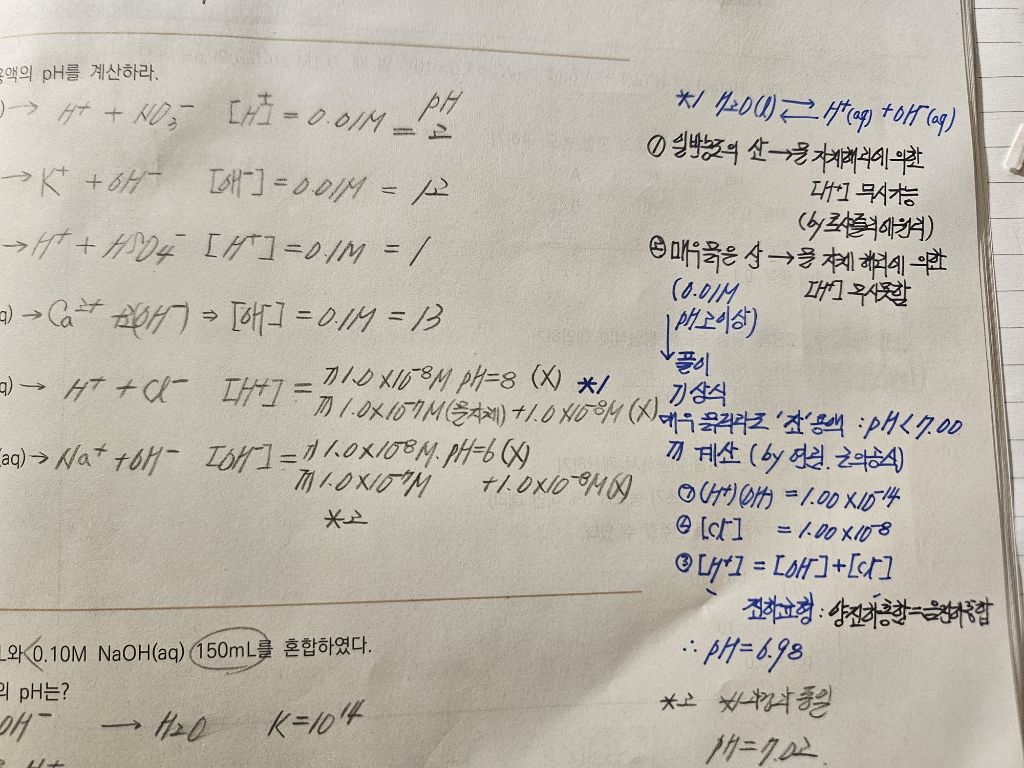 용액의 pH를 계산하라.
) → H⁺ + NO₃⁻ [H⁺] = 0.01M = pH 2
→ K⁺ + OH⁻ [OH⁻] = 0.01M = 12
→ H⁺ + HSO₄⁻ [H⁺] = 0.1M = 1
q) → Ca²⁺ + 2(OH⁻) ⇒ [OH⁻] = 0.1M = 13
q) → H⁺ + Cl⁻ [H⁺] = ㄱ) 1.0×10⁻⁸M pH=8 (X) *1
ㄲ) 1.0×10⁻⁷M (물자체) + 1.0×10⁻⁸M (X)
(aq) → Na⁺ + OH⁻ [OH⁻] = ㄱ) 1.0×10⁻⁸M. pH=6 (X)
ㄲ) 1.0×10⁻⁷M + 1.0×10⁻⁸M (X)
*2
L와 0.10M NaOH(aq) 150mL를 혼합하였다.
의 pH는?
OH⁻ → H₂O K=10¹⁴
H⁺
*1 H₂O(l) ⇄ H⁺(aq) + OH⁻(aq)
① 일반농도의 산 → 물 자체해리에 의한
[H⁺] 무시가능
(by 르샤틀리에원리)
② 매우묽은 산 → 물 자체 해리에 의한
(0.01M [H⁺] 무시못함
pH 2이상)
↓ 풀이
ㄱ) 상식
매우 묽더라도 '산'용액 : pH < 7.00
ㄲ) 계산 (by 연립. 근의공식)
① (H⁺)(OH⁻) = 1.00×10⁻¹⁴
② [Cl⁻] = 1.00×10⁻⁸
③ [H⁺] = [OH⁻] + [Cl⁻]
전하균형 : 양전하총합 = 음전하총합
∴ pH = 6.98
*2 *1과 동일
pH = 7.02